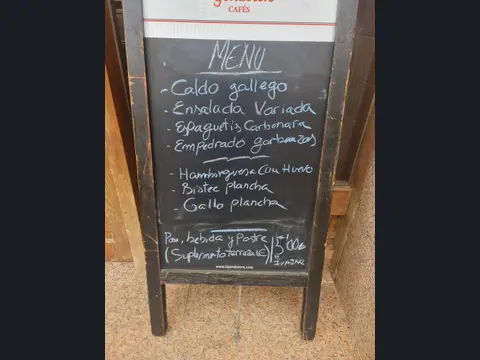 CAFÉS
MENU
- Caldo gallego
- Ensalada Variada
- Espaguetis Carbonara
- Empedrado garbanzos
- Hamburguesa Con Huevo
- Bistec plancha
- Gallo plancha
Pan, bebida y Postre
(Suplemento terraza 1€)
www.tupendolera.com